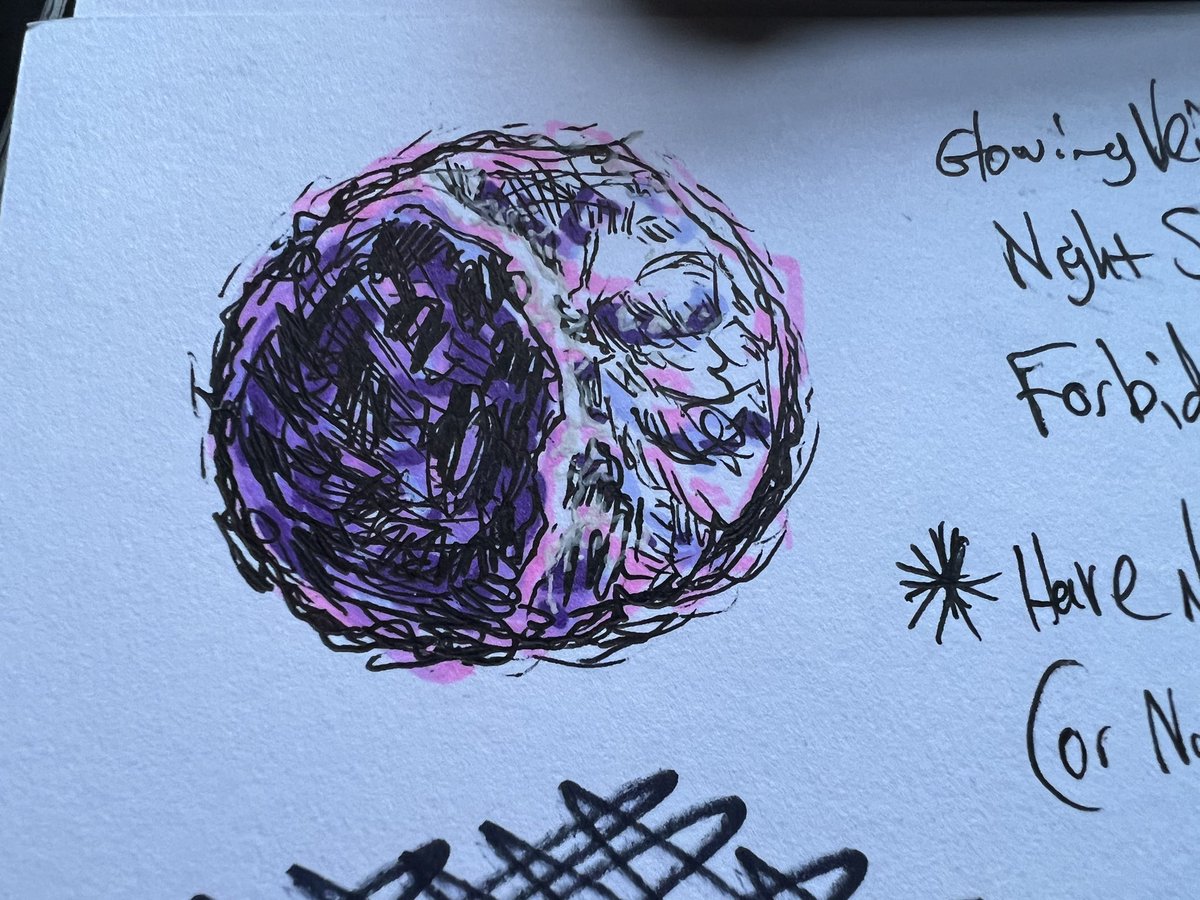 Glowing Vei
Night S
Forbid
* Have N
(or No